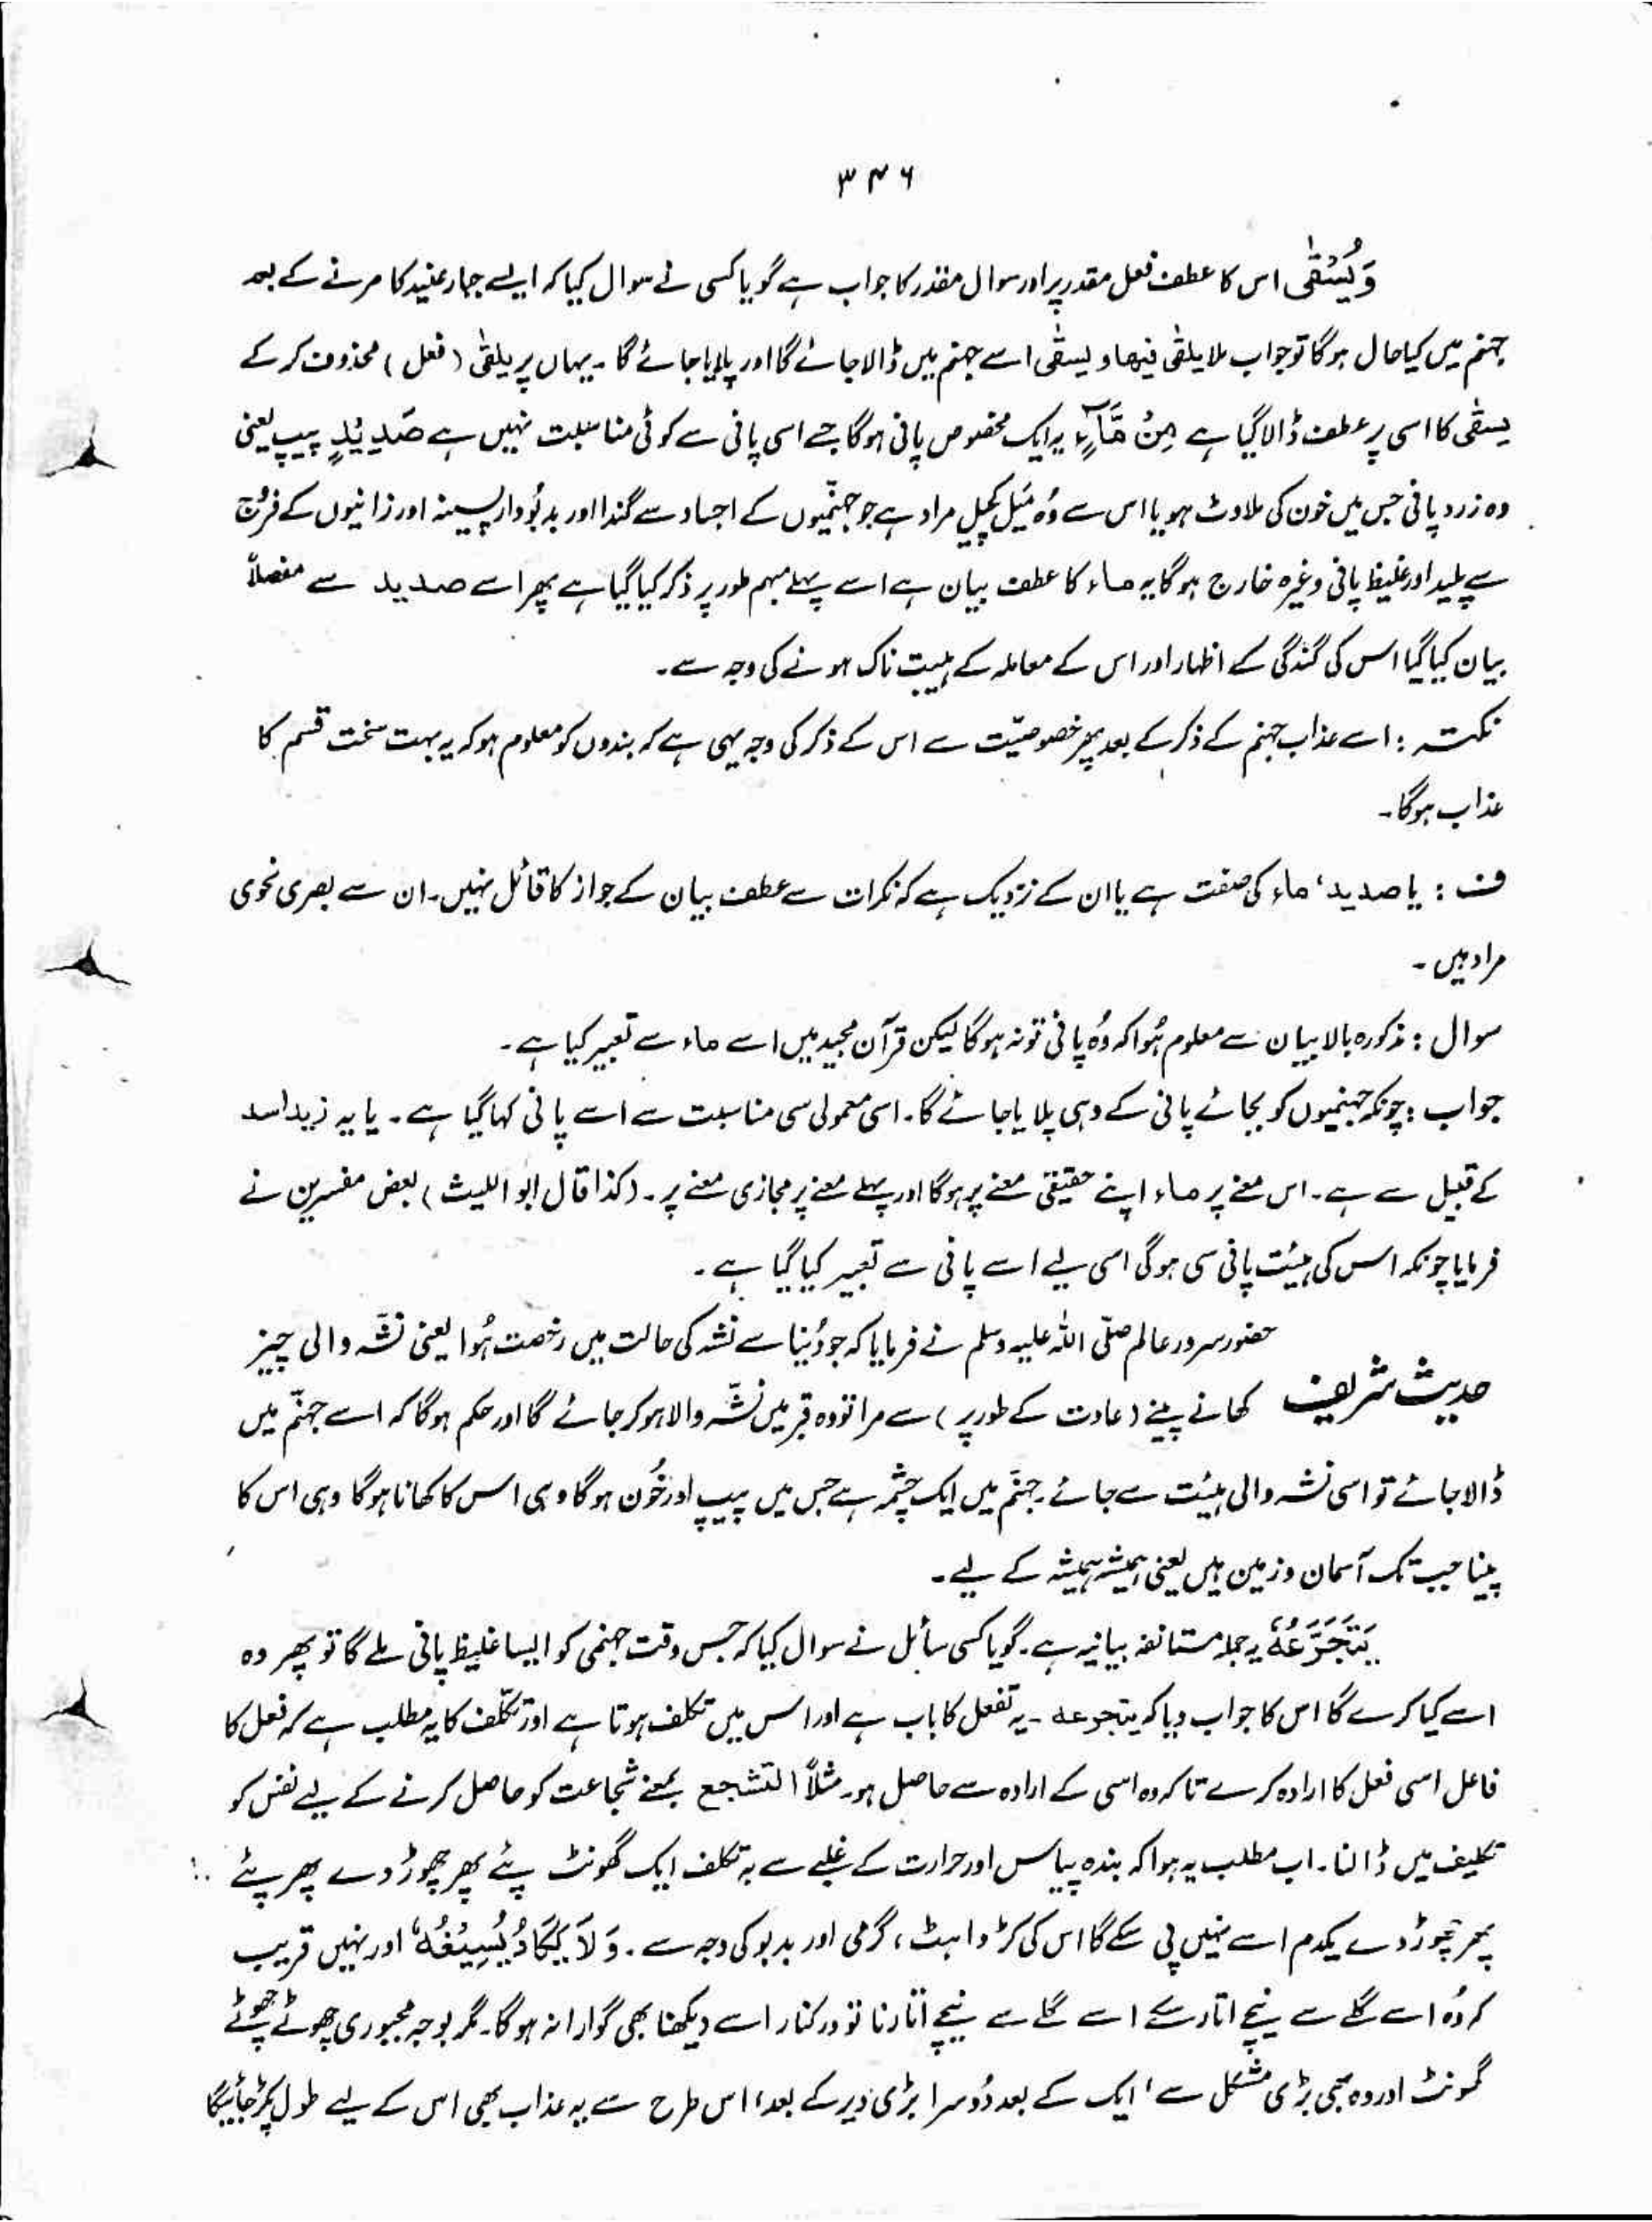 ۳۴۶
وَیُسْقٰی اس کا عطف فعل مقدر پر اور سوال مقدر کا جواب ہے گویا کسی نے سوال کیا کہ ایسے جبار عنید کا مرنے کے بعد
جہنم میں کیا حال ہوگا تو جواب ملا یلقٰی فیھا و یسقٰی اسے جہنم میں ڈالا جائے گا اور پلایا جائے گا۔ یہاں پر یلقٰی (فعل) محذوف کر کے
یسقٰی کا اسی پر عطف ڈالا گیا ہے مِنْ مَّآءٍ یہ ایک مخصوص پانی ہوگا جسے اسی پانی سے کوئی مناسبت نہیں ہے صَدِیْدٍ پیپ یعنی
وہ زرد پانی جس میں خون کی ملاوٹ ہو یا اس سے وُہ مَیل کچیل مراد ہے جو جہنّمیوں کے اجساد سے گندا اور بدبُودار پسینہ اور زانیوں کے فرُج
سے پلید اور غلیظ پانی وغیرہ خارج ہوگا یہ ماء کا عطف بیان ہے اسے پہلے مبہم طور پر ذکر کیا گیا ہے پھر اسے صدید سے مفصلاً
بیان کیا گیا اس کی گندگی کے اظہار اور اس کے معاملہ کے ہیبت ناک ہونے کی وجہ سے۔
نکتہ : اسے عذاب جہنم کے ذکر کے بعد پھر خصوصیّت سے اس کے ذکر کی وجہ یہی ہے کہ بندوں کو معلوم ہو کہ یہ بہت سخت قسم کا
عذاب ہوگا۔
ف : یا صدید، ماء کی صفت ہے یا ان کے نزدیک ہے کہ نکرات سے عطف بیان کے جواز کا قائل نہیں۔ ان سے بصری نحوی
مراد ہیں۔
سوال : مذکورہ بالا بیان سے معلوم ہُوا کہ وُہ پانی تو نہ ہوگا لیکن قرآن مجید میں اسے ماء سے تعبیر کیا ہے۔
جواب : چونکہ جہنمیوں کو بجائے پانی کے وہی پلایا جائے گا۔ اسی معمولی سی مناسبت سے اسے پانی کہا گیا ہے۔ یا یہ زید اسد
کے قبیل سے ہے۔ اس معنے پر ماء اپنے حقیقی معنے پر ہوگا اور پہلے معنے پر مجازی معنے پر۔ (کذا قال ابو اللیث) بعض مفسرین نے
فرمایا چونکہ اس کی ہیئت پانی سی ہوگی اسی لیے اسے پانی سے تعبیر کیا گیا ہے۔
حضور سرور عالم صلّی اللہ علیہ وسلم نے فرمایا کہ جو دُنیا سے نشہ کی حالت میں رخصت ہُوا یعنی نشّہ والی چیز
حدیث شریف کھانے پینے (عادت کے طور پر) سے مرا تو وہ قبر میں نشّہ والا ہو کر جائے گا اور حکم ہوگا کہ اسے جہنّم میں
ڈالا جائے تو اسی نشہ والی ہیئت سے جائے۔ جہنّم میں ایک چشمہ ہے جس میں پیپ اور خُون ہوگا وہی اس کا کھانا ہوگا وہی اس کا
پینا جب تک آسمان و زمین ہیں یعنی ہمیشہ ہمیشہ کے لیے۔
یَتَجَرَّعُہٗ یہ جملہ مستانفہ بیانیہ ہے۔ گویا کسی سائل نے سوال کیا کہ جس وقت جہنمی کو ایسا غلیظ پانی ملے گا تو پھر وہ
اسے کیا کرے گا اس کا جواب دیا کہ یتجرعہ ۔ یہ تفعل کا باب ہے اور اس میں تکلف ہوتا ہے اور تکلّف کا یہ مطلب ہے کہ فعل کا
فاعل اسی فعل کا ارادہ کرے تاکہ وہ اسی کے ارادہ سے حاصل ہو۔ مثلاً التشجع بمعنے شجاعت کو حاصل کرنے کے لیے نفس کو
تکلیف میں ڈالنا۔ اب مطلب یہ ہوا کہ بندہ پیاس اور حرارت کے غلبے سے بہ تکلف ایک گھونٹ پئے پھر چھوڑ دے پھر پئے
پھر چھوڑ دے یکدم اسے نہیں پی سکے گا اس کی کڑواہٹ، گرمی اور بدبو کی وجہ سے۔ وَلَا یَکَادُ یُسِیْغُہٗ اور نہیں قریب
کہ وُہ اسے گلے سے نیچے اتار سکے اسے گلے سے نیچے اتارنا تو درکنار اسے دیکھنا بھی گوارا نہ ہوگا۔ مگر بوجہ مجبوری چھوٹے چھوٹے
گھونٹ اور وہ بھی بڑی مشکل سے، ایک کے بعد دُوسرا بڑی دیر کے بعد، اس طرح سے یہ عذاب بھی اس کے لیے طول پکڑ جائیگا